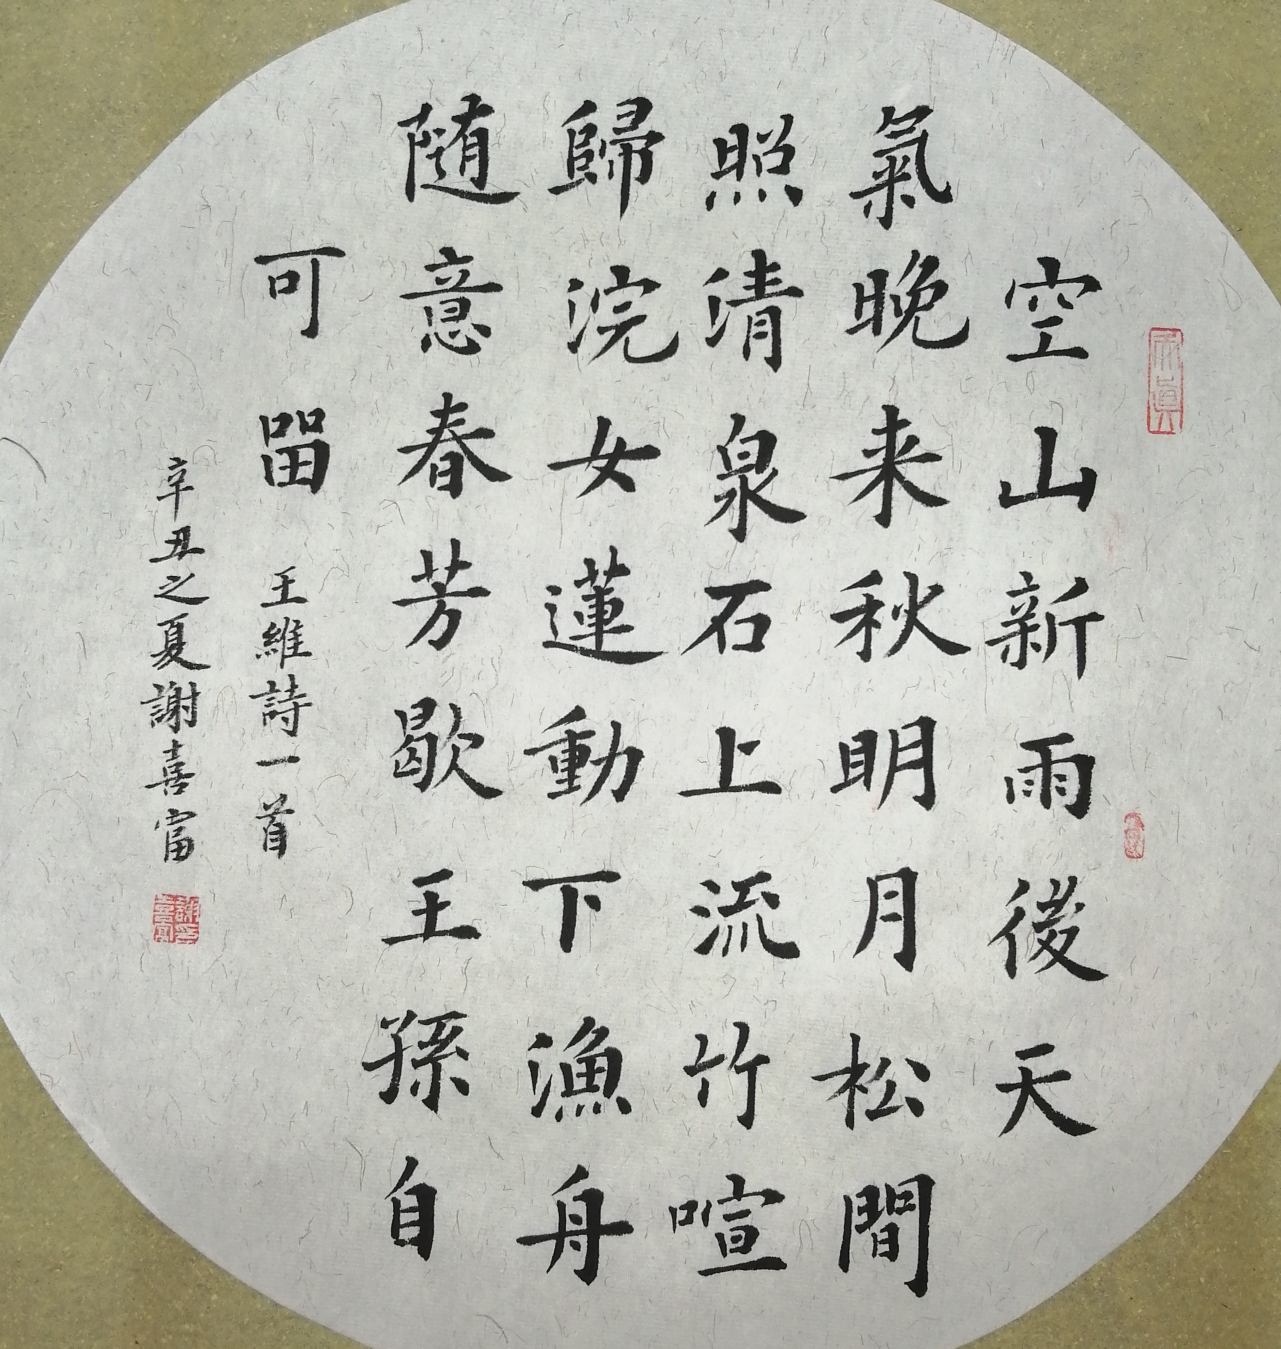 空山新雨後天
氣晚来秋明月松間
照清泉石上流竹喧
歸浣女蓮動下漁舟
随意春芳歇王孫自
可畱 王維詩一首
辛丑之夏謝喜富